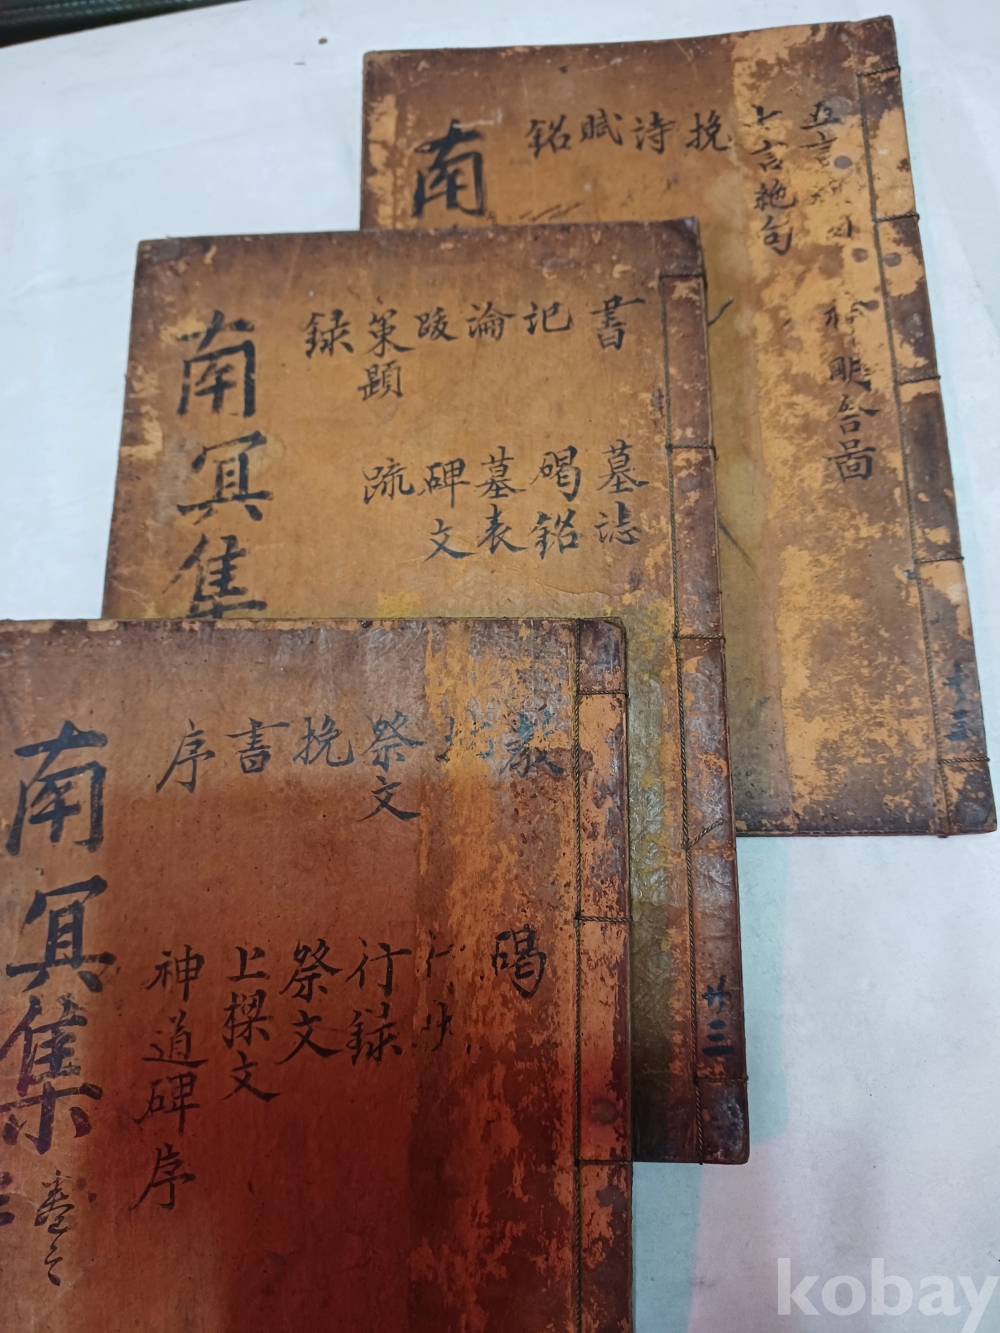 五言
七言絶句
挽
詩
賦
銘
神明舍圖
南
十三
書
記
論
跋
策題
録
墓誌
碣銘
墓表
碑文
疏
南冥集
廿三
教
祭文
挽
書
序
碣
行録
祭文
上樑文
神道碑序
南冥集
卷之
kobay